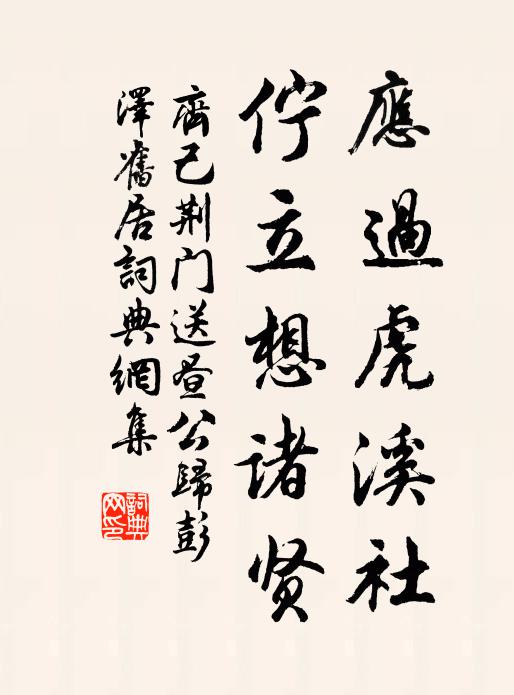 應過虎溪社
佇立想诸贤
齊己荆门送昼公歸彭
澤舊居詞典網集
詞典
网印